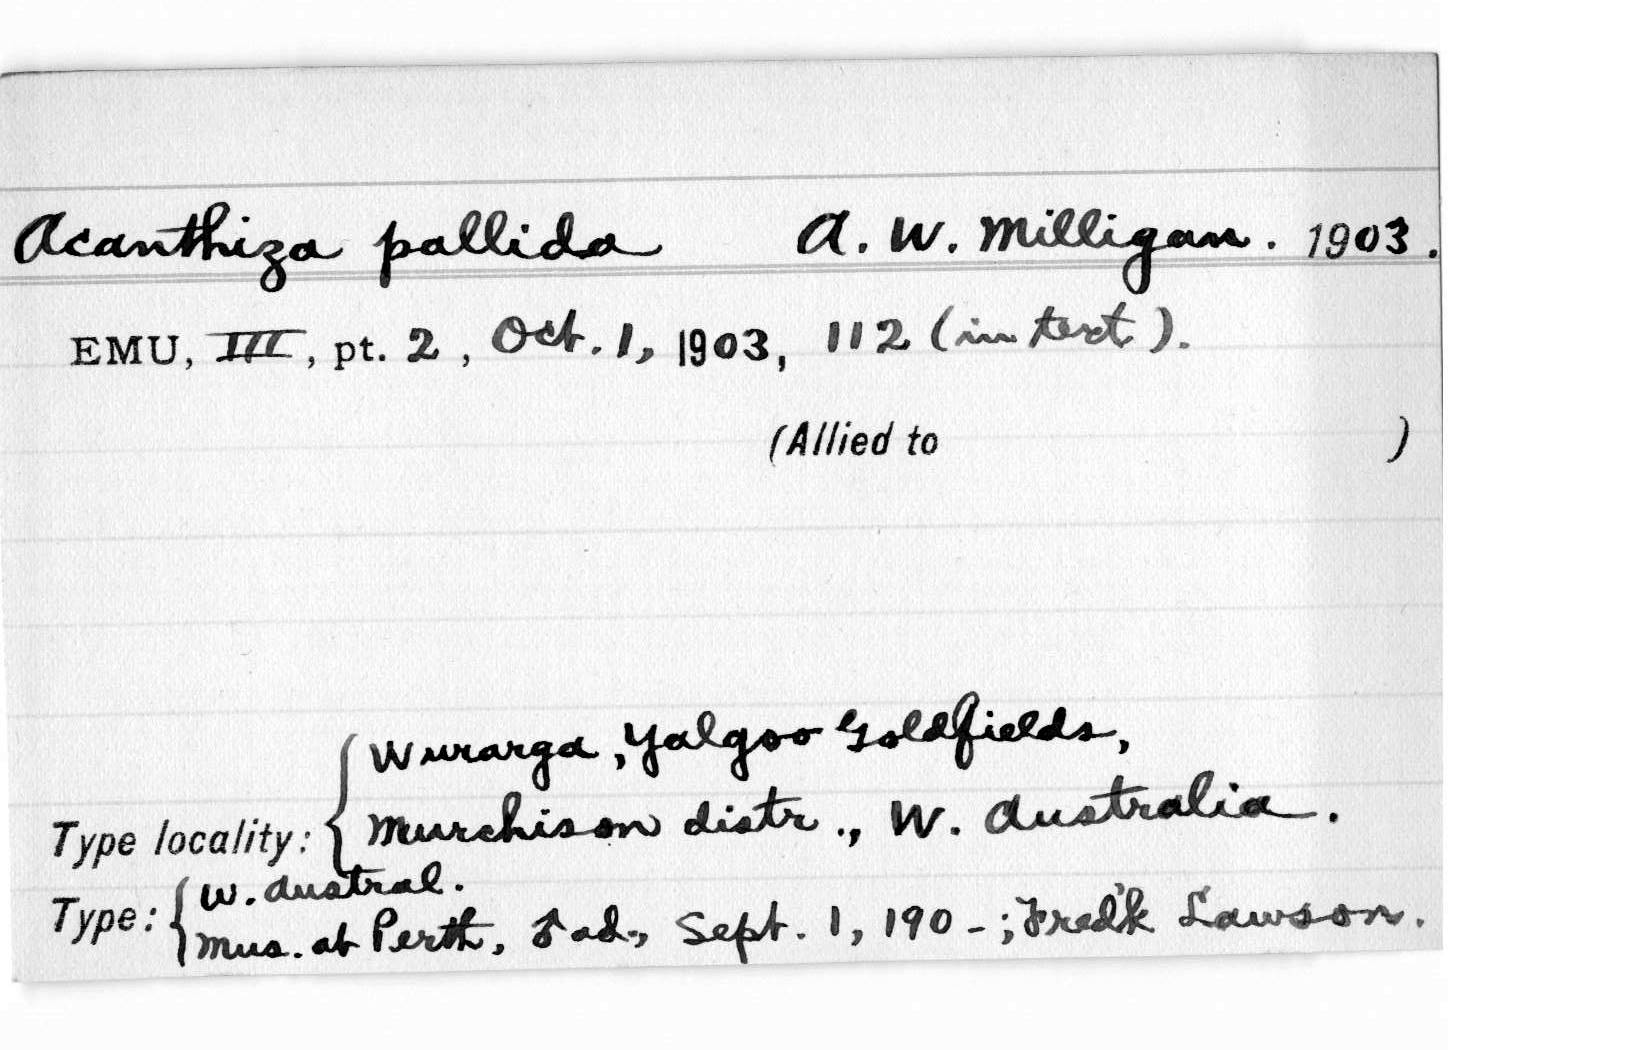 Acanthiza pallida A. W. Milligan. 1903.
EMU, III, pt. 2, Oct. 1, 1903, 112 (in text).
(Allied to )
Type locality: { Wurarga, Yalgoo Goldfields,
Murchison distr., W. Australia.
Type: { W. Austral.
Mus. at Perth, ♂ ad., Sept. 1, 190-; Fred'k Lawson.